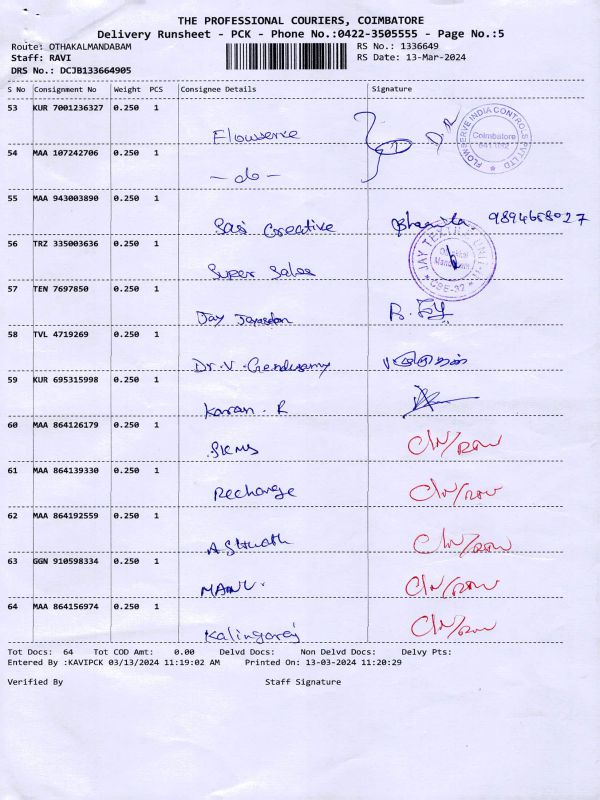 THE PROFESSIONAL COURIERS, COIMBATORE
Delivery Runsheet - PCK - Phone No.:0422-3505555 - Page No.:5
Route: OTHAKALMANDABAM RS No.: 1336649
Staff: RAVI RS Date: 13-Mar-2024
DRS No.: DCJB133664905
S No Consignment No Weight PCS Consignee Details Signature
53 KUR 7001236327 0.250 1
Flowserve
FLOWSERVE INDIA CONTROLS PVT LTD
Coimbatore
641 032
54 MAA 107242706 0.250 1
- do -
55 MAA 943003890 0.250 1
Sasi Creative 9894658027
56 TRZ 335003636 0.250 1
Super Sales
JAY TEXTILE UNIT-II
CBE-32
57 TEN 7697850 0.250 1
Jay
58 TVL 4719269 0.250 1
Dr. V.
59 KUR 695315998 0.250 1
Karan. R
60 MAA 864126179 0.250 1
61 MAA 864139330 0.250 1
Recharge
62 MAA 864192559 0.250 1
63 GGN 910598334 0.250 1
64 MAA 864156974 0.250 1
Kalingaraj
Tot Docs: 64 Tot COD Amt: 0.00 Delvd Docs: Non Delvd Docs: Delvy Pts:
Entered By :KAVIPCK 03/13/2024 11:19:02 AM Printed On: 13-03-2024 11:20:29
Verified By Staff Signature